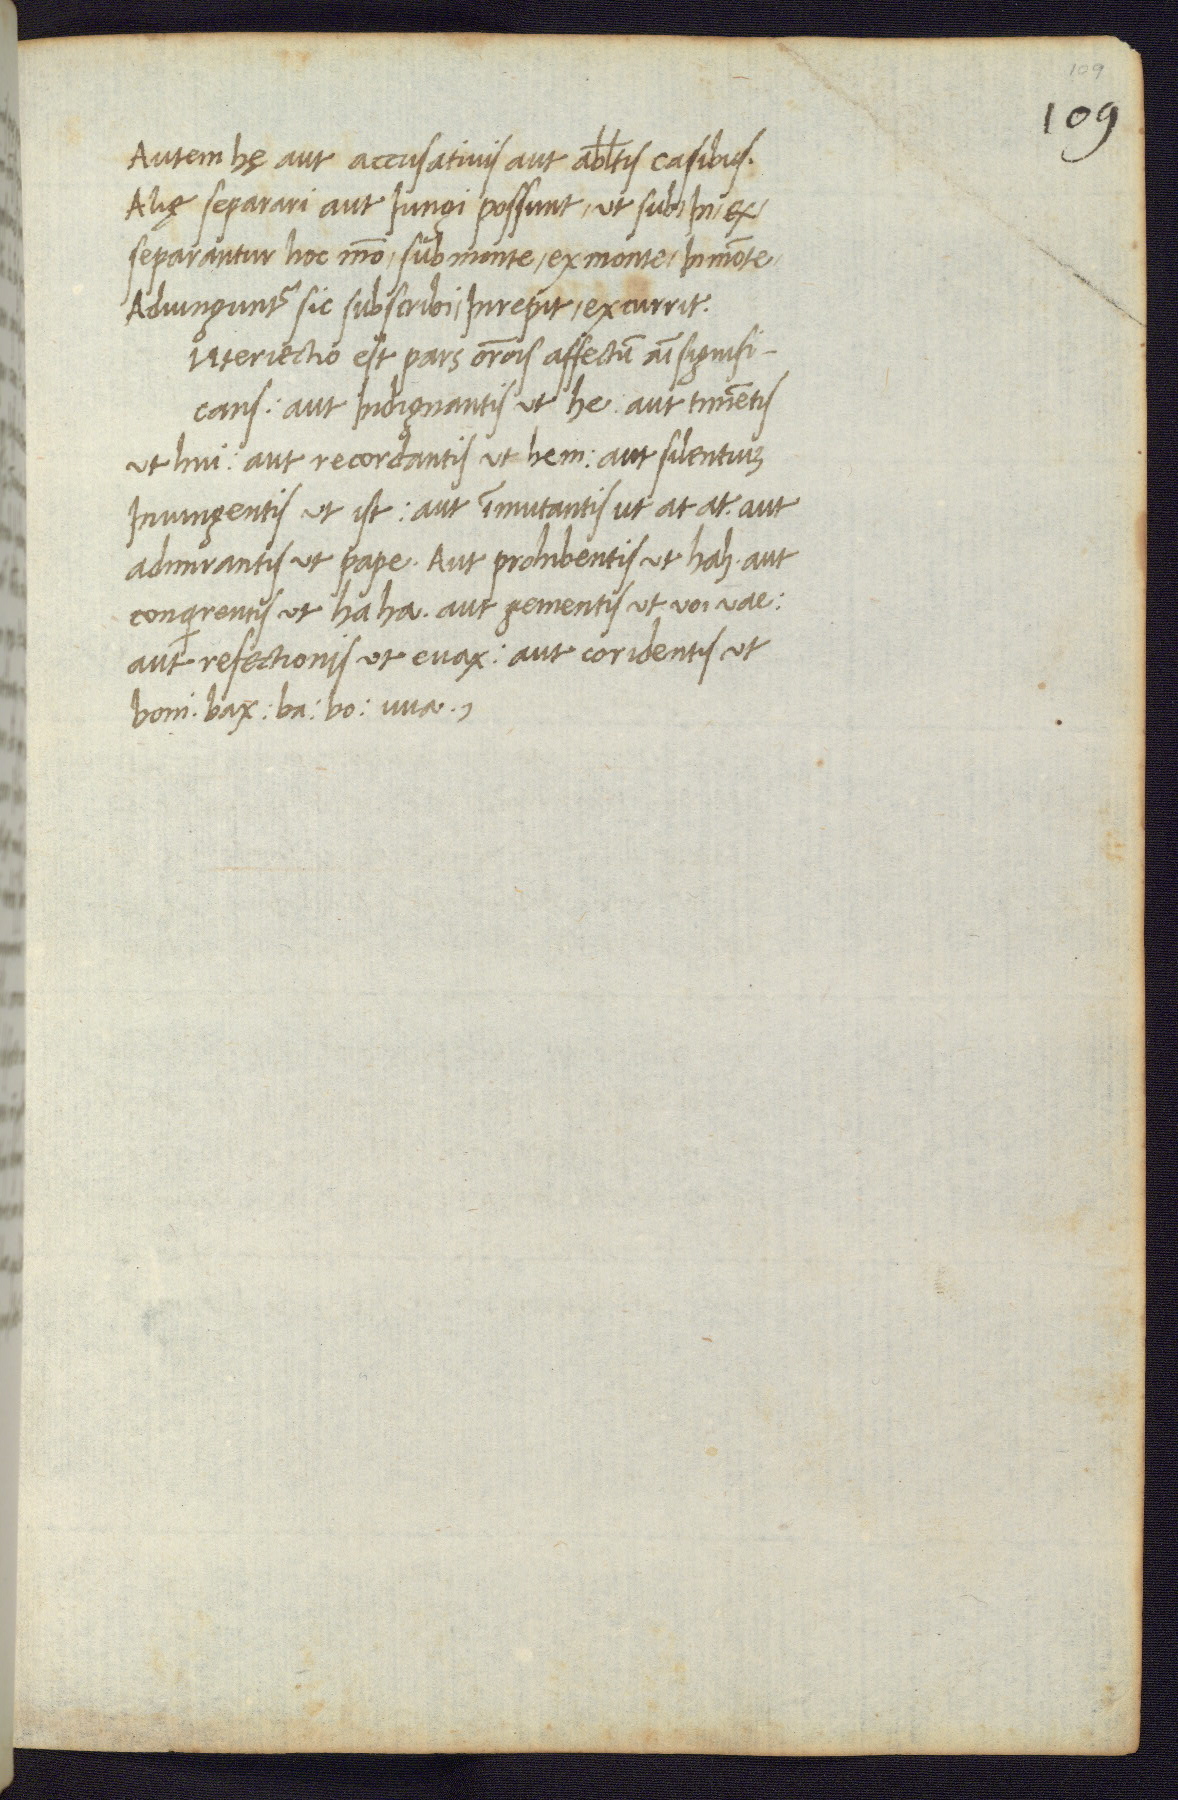 109
109
Autem hę aut accusativis aut abl̄tis casibus.
Alię separari aut Jungi possunt, ut sub, In, ex,
separantur hoc mō, sub monte, ex monte, In mōte,
Adiungunt᷑ sic subscribi, Inrepit, excurrit.
Nteriectio est pars or̄ois affectū aī signifi-
cans: aut Indignantis ut he: aut timētis
ut hui: aut recordantis ut hem: aut silentiuꝫ
Iniungentis ut ist: aut īmutantis ut at at. aut
admirantis ut pape. Aut prohibentis ut hah. aut
conqrentis ut ha ha. aut gementis ut uoi uae:
aut refectionis ut euax: aut coridentis ut
boni. bax: ba: bo: uua.,